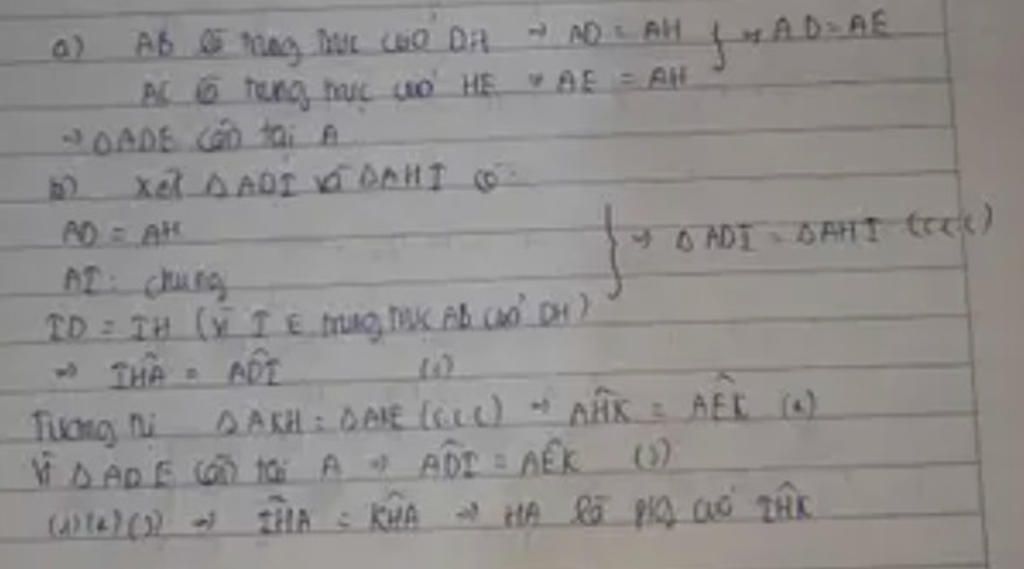 a) AB là trung trực của DH → AD = AH } → AD = AE
AC là trung trực của HE → AE = AH
→ ΔADE cân tại A
b) Xét ΔADI và ΔAHI có:
AD = AH
AI: chung } → ΔADI = ΔAHI (c.c.c)
ID = IH (vì I ∈ trung trực AB của DH)
→ IĤA = AD̂I (1)
Tương tự ΔAKH = ΔAKE (c.c.c) → AĤK = AÊK (2)
Vì ΔADE cân tại A → AD̂I = AÊK (3)
(1)(2)(3) → IĤA = KĤA → HA là p/g của IĤK